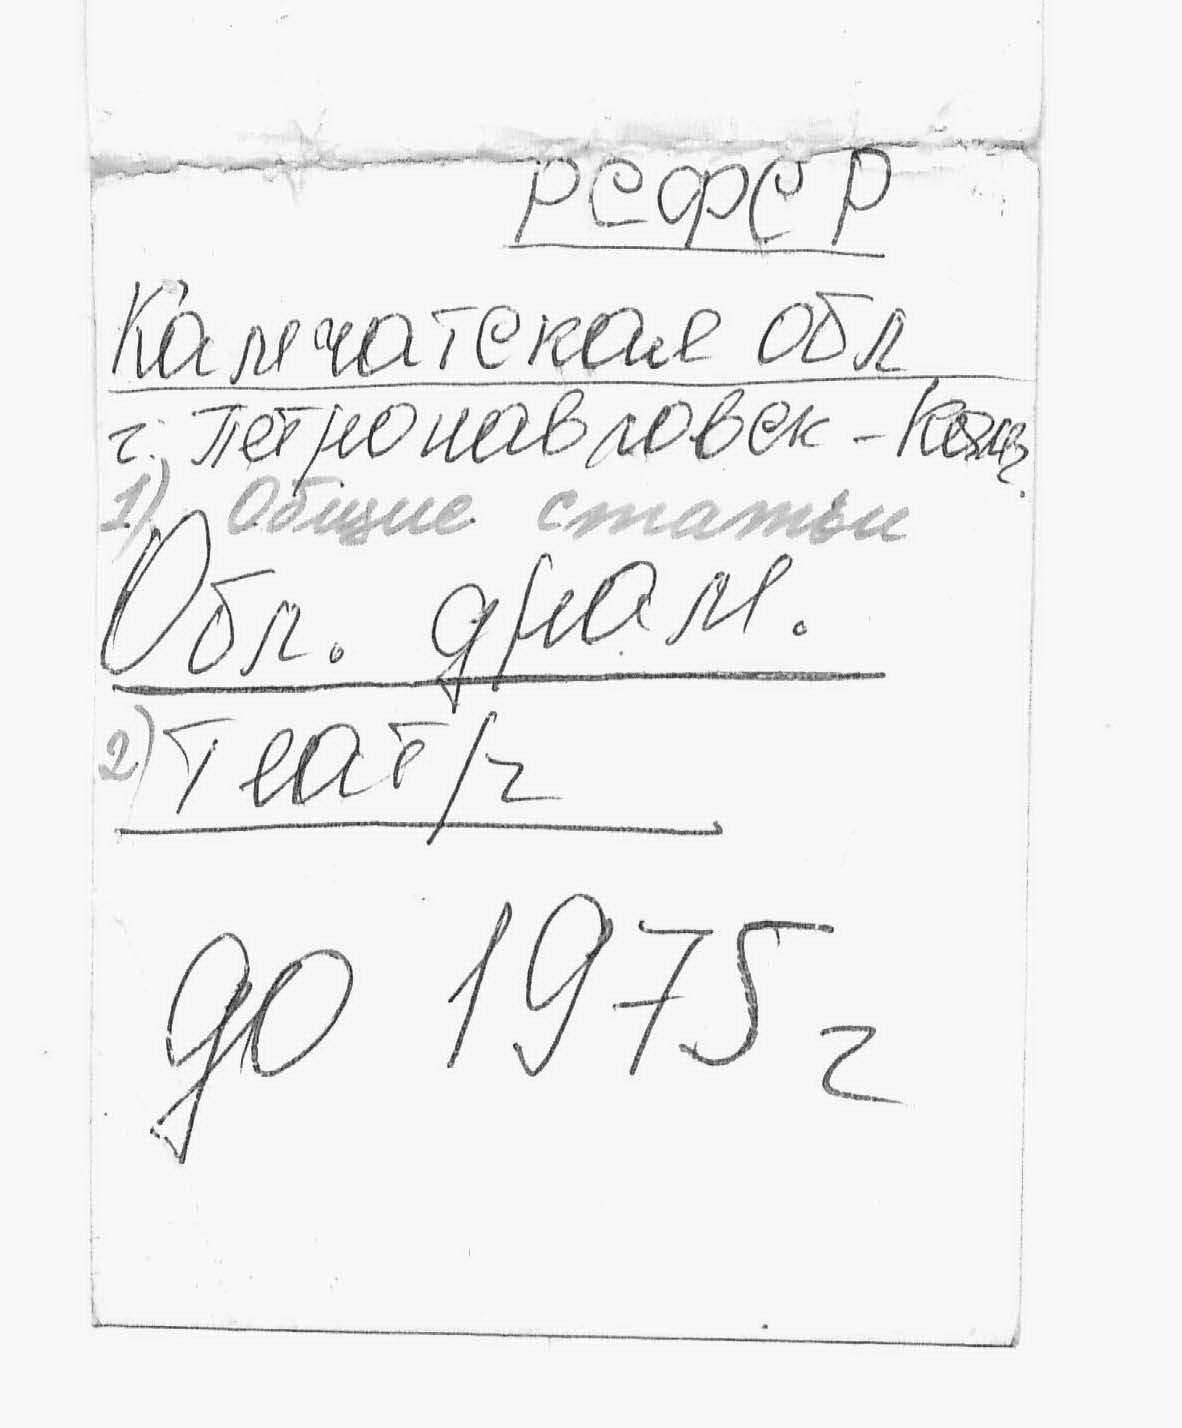 РСФСР
Камчатская обл
г. Петропавловск - Камч.
1) Общие статьи
Обл. драм.
2) театр
до 1975 г